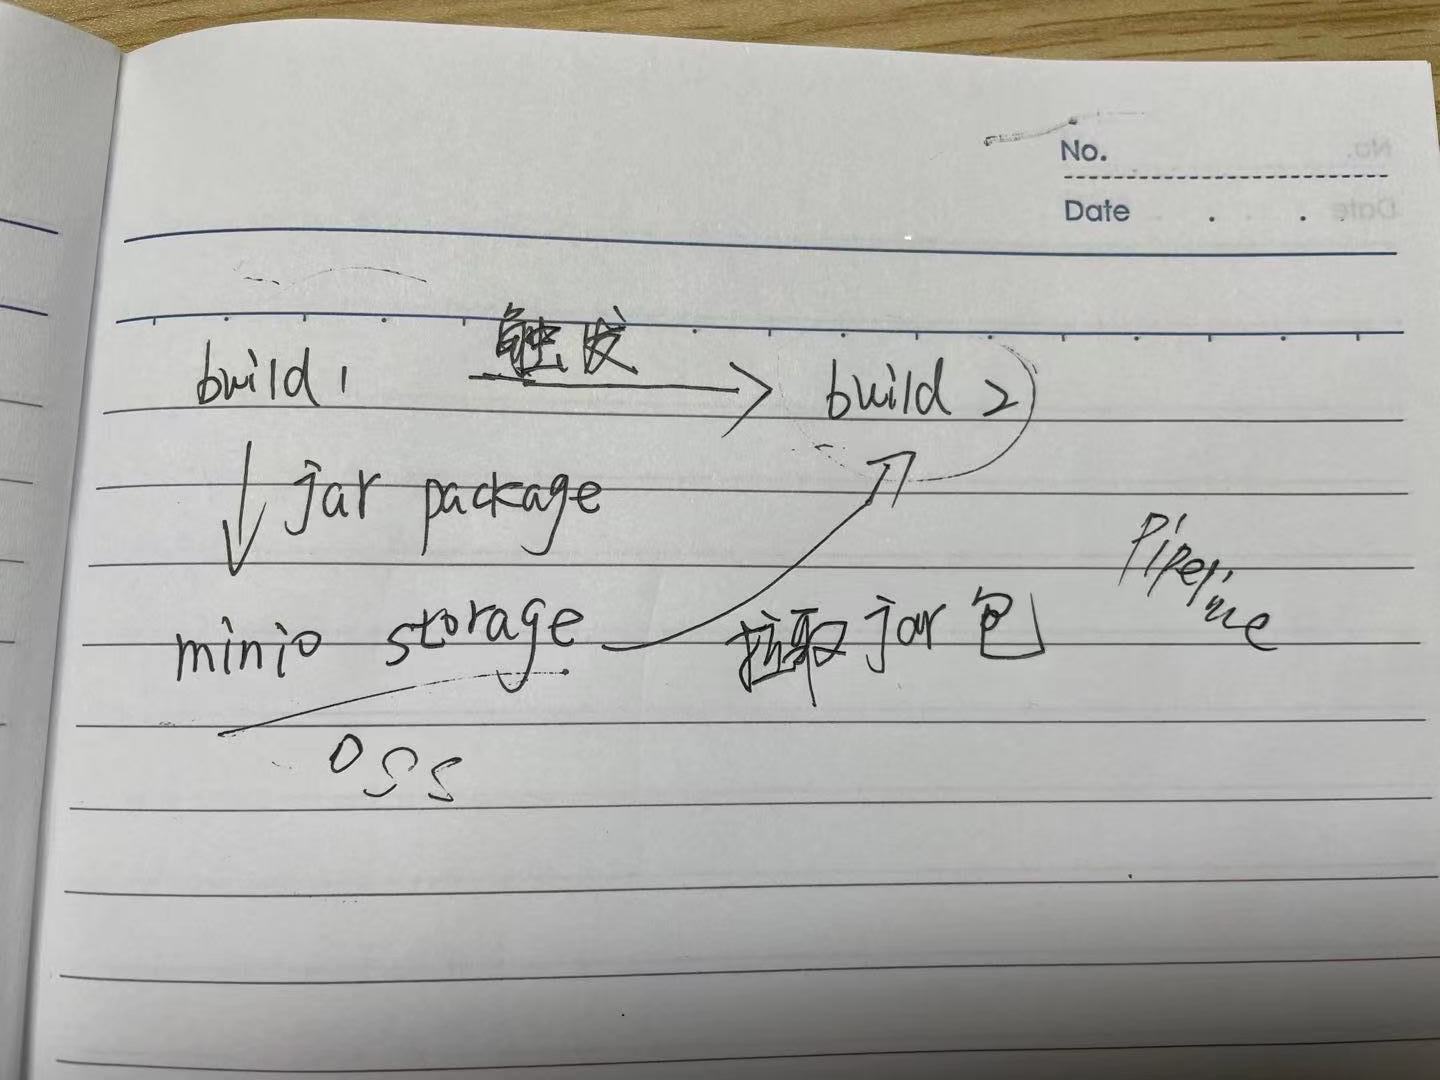 No.
Date
触发
build 1
build 2
jar package
Pipeline
minio storage
拉取jar包
OSS